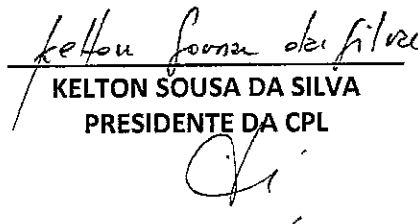 Kelton Sousa da Silva
KELTON SOUSA DA SILVA
PRESIDENTE DA CPL